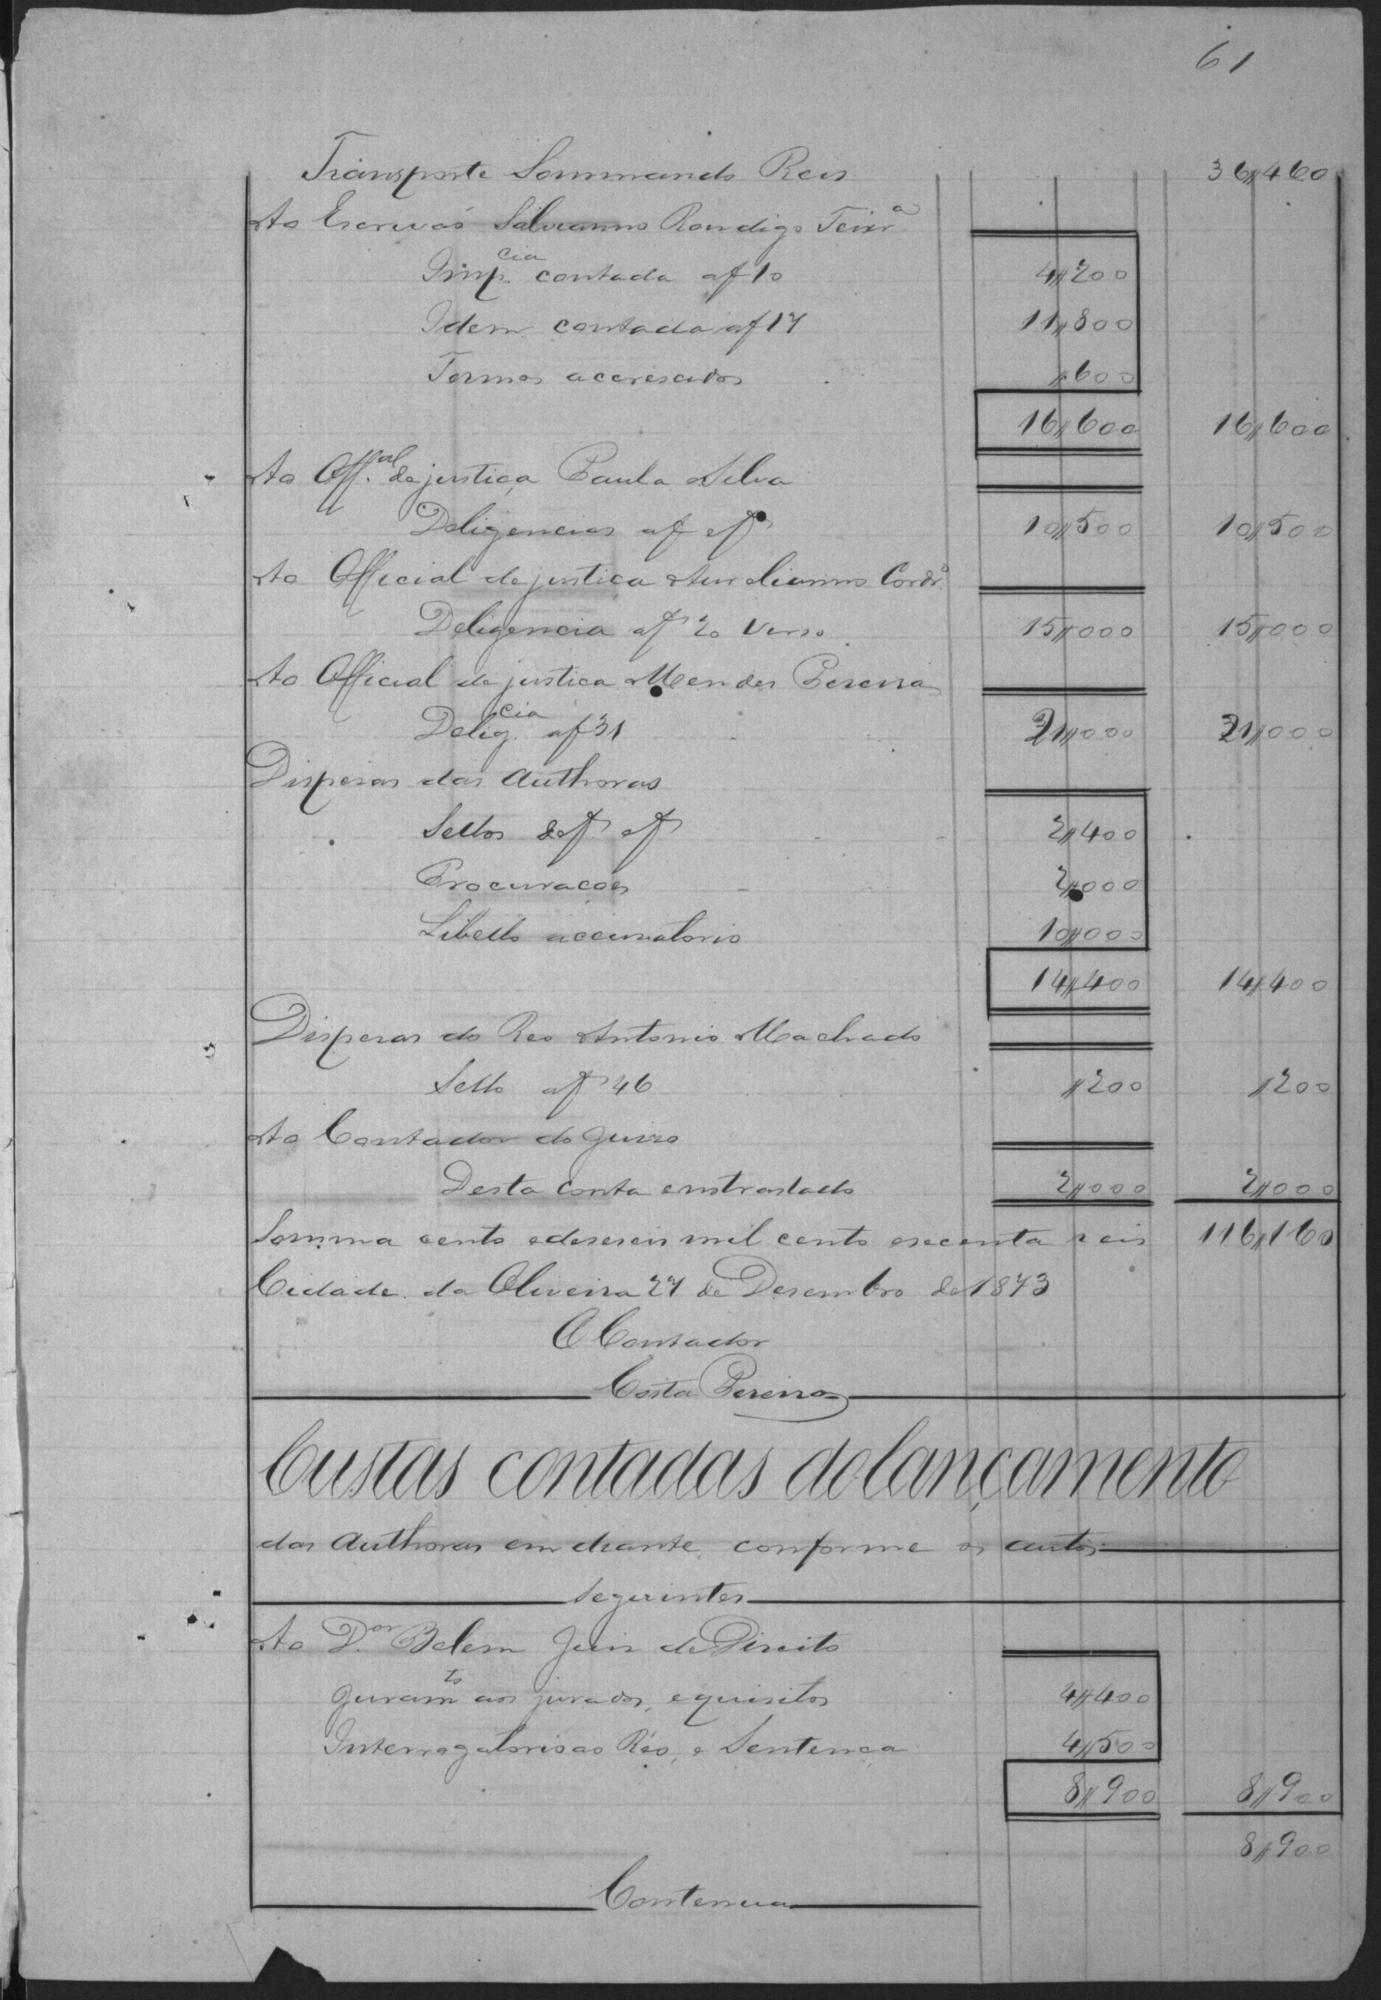 61
Transporte Sommando Reis 36,,460
Ao Escrivão Silvanno Roudigo Teixr.ª
Imp.cia contada af 10 4,,200
Idem contada af 17 11,,800
Termos accrescidos ,,600
16,,600 16,,600
Ao Off.al de justiça Paula Silva
Deligencias af ef 10,,500 10,,500
Ao Official de justiça Aurelianno Cordr.º
Deligencia af 20 verso 15,,000 15,,000
Ao Official de justiça Mendes Pereira
Delig.cia af 31 21,,000 21,,000
Dispesas das Authoras
Sellos def ef 2,,400
Procuracões 2,,000
Libello accusatorio 10,,000
14,,400 14,,400
Dispesas do Reo Antonio Machado
Sello af 46 ,,200 ,,200
Ao Contador do Juizo
Desta conta emtraslado 2,,000 2,,000
Somma cento edeseseis mil cento esecenta reis 116,,160
Cidade da Oliveira 27 de Desembro de 1873
O Contador
Costa Pereira
Custas contadas dolançamento
das Authoras em diante, conforme os autos
seguintes
Ao D.or Belem Juis de Direito
Juram.to aos jurados, equisitos 4,,400
Interrogatorioao Réo, e Sentença 4,,500
8,,900 8,,900
8,,900
Contenua